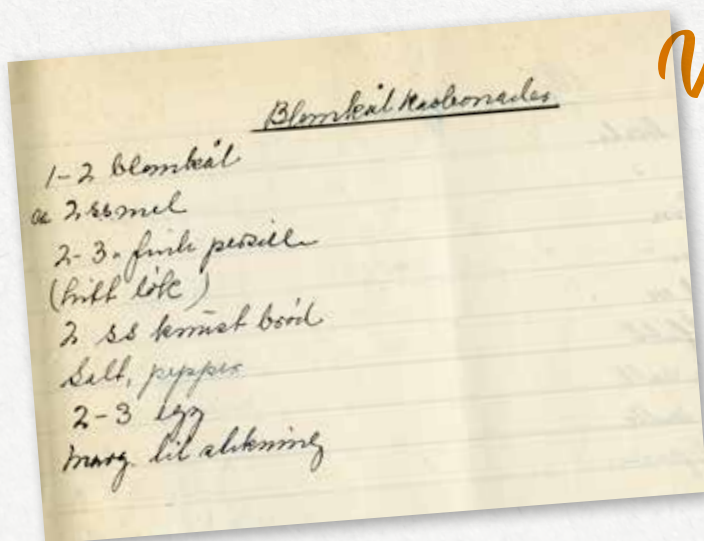 Blomkål karbonader
1-2 blomkål
ca 2 ss mel
2-3 " finh persille
(litt løk)
2 ss knust brød
Salt, pepper
2-3 egg
marg. til stekning